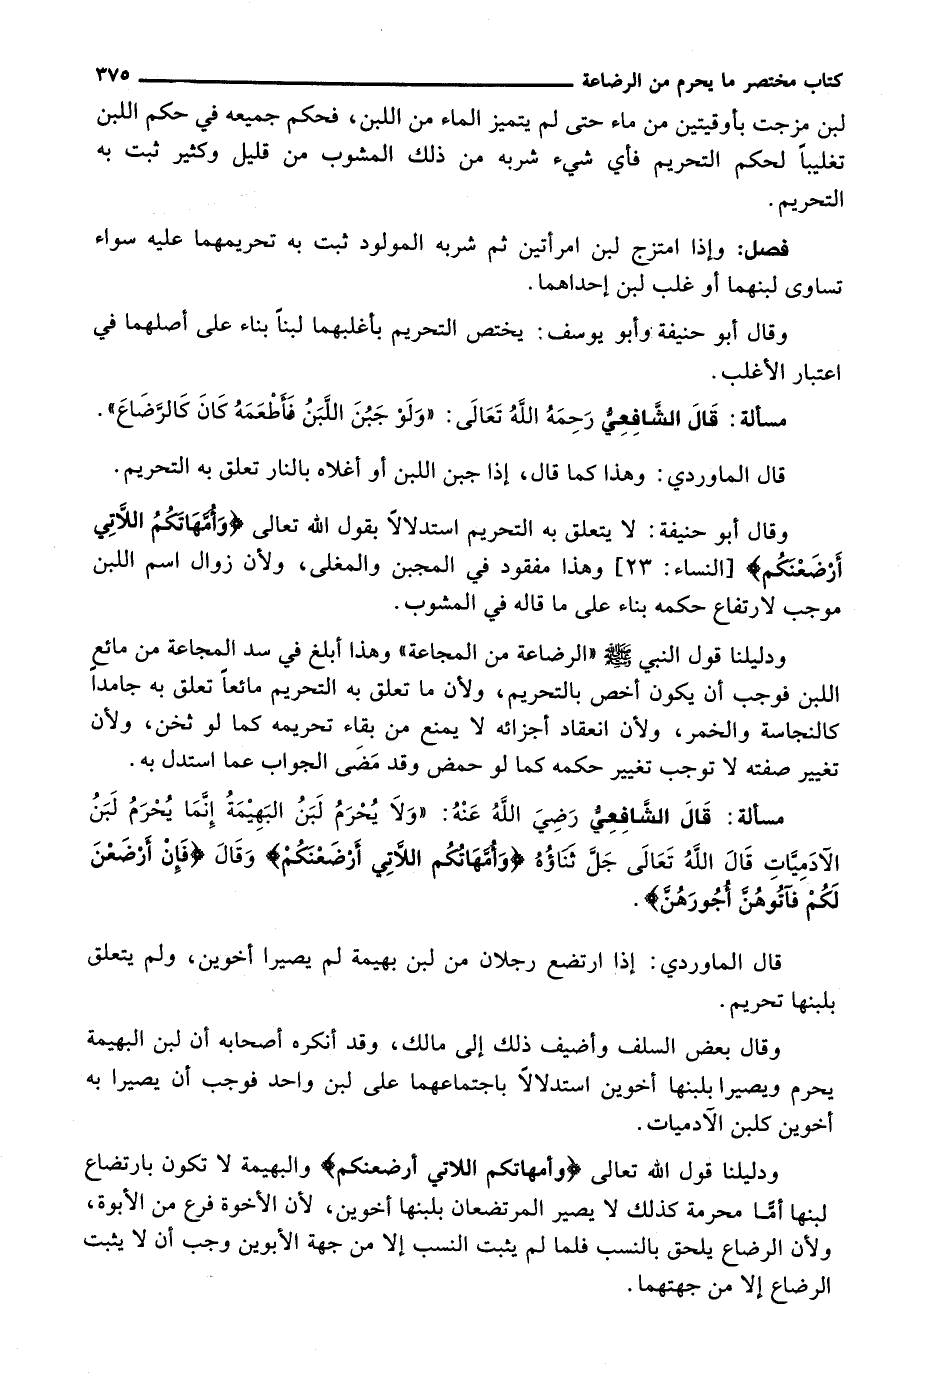 كتاب مختصر ما يحرم من الرضاعة ٣٧٥
لبن مزجت بأوقيتين من ماء حتى لم يتميز الماء من اللبن، فحكم جميعه في حكم اللبن
تغليباً لحكم التحريم فأي شيء شربه من ذلك المشوب من قليل وكثير ثبت به
التحريم.
فصل: وإذا امتزج لبن امرأتين ثم شربه المولود ثبت به تحريمهما عليه سواء
تساوى لبنهما أو غلب لبن إحداهما.
وقال أبو حنيفة وأبو يوسف: يختص التحريم بأغلبهما لبناً بناء على أصلهما في
اعتبار الأغلب.
مسألة: قَالَ الشَّافِعِيُّ رَحِمَهُ اللَّهُ تَعَالَى: «وَلَوْ جَبُنَ اللَّبَنُ فَأَطْعَمَهُ كَانَ كَالرَّضَاعَ».
قال الماوردي: وهذا كما قال، إذا جبن اللبن أو أغلاه بالنار تعلق به التحريم.
وقال أبو حنيفة: لا يتعلق به التحريم استدلالاً بقول الله تعالى ﴿وَأُمَّهَاتَكُمُ اللاَّتِي
أَرْضَعْنَكُم﴾ [النساء: ٢٣] وهذا مفقود في المجبن والمغلى، ولأن زوال اسم اللبن
موجب لارتفاع حكمه بناء على ما قاله في المشوب.
ودليلنا قول النبي ﷺ «الرضاعة من المجاعة» وهذا أبلغ في سد المجاعة من مائع
اللبن فوجب أن يكون أخص بالتحريم، ولأن ما تعلق به التحريم مائعاً تعلق به جامداً
كالنجاسة والخمر، ولأن انعقاد أجزائه لا يمنع من بقاء تحريمه كما لو ثخن، ولأن
تغيير صفته لا توجب تغيير حكمه كما لو حمض وقد مَضَى الجواب عما استدل به.
مسألة: قَالَ الشَّافِعِيُّ رَضِيَ اللَّهُ عَنْهُ: «وَلَا يُحْرَمُ لَبَنُ البَهِيْمَةُ إِنَّمَا يُحْرَمُ لَبَنُ
الآدَمِيَّاتِ قَالَ اللَّهُ تَعَالَى جَلَّ ثَنَاؤُهُ ﴿وَأُمَّهَاتُكُم اللاَّتِي أَرْضَعْنَكُمْ﴾ وَقَالَ ﴿فَإِنْ أَرْضَعْنَ
لَكُمْ فآتُوهُنَّ أُجُورَهُنَّ﴾.
قال الماوردي: إذا ارتضع رجلان من لبن بهيمة لم يصيرا أخوين، ولم يتعلق
بلبنها تحريم.
وقال بعض السلف وأضيف ذلك إلى مالك، وقد أنكره أصحابه أن لبن البهيمة
يحرم ويصيرا بلبنها أخوين استدلالاً باجتماعهما على لبن واحد فوجب أن يصيرا به
أخوين كلبن الآدميات.
ودليلنا قول الله تعالى ﴿وأمهاتكم اللاتي أرضعنكم﴾ والبهيمة لا تكون بارتضاع
لبنها أمَّا محرمة كذلك لا يصير المرتضعان بلبنها أخوين، لأن الأخوة فرع من الأبوة،
ولأن الرضاع يلحق بالنسب فلما لم يثبت النسب إلا من جهة الأبوين وجب أن لا يثبت
الرضاع إلا من جهتهما.